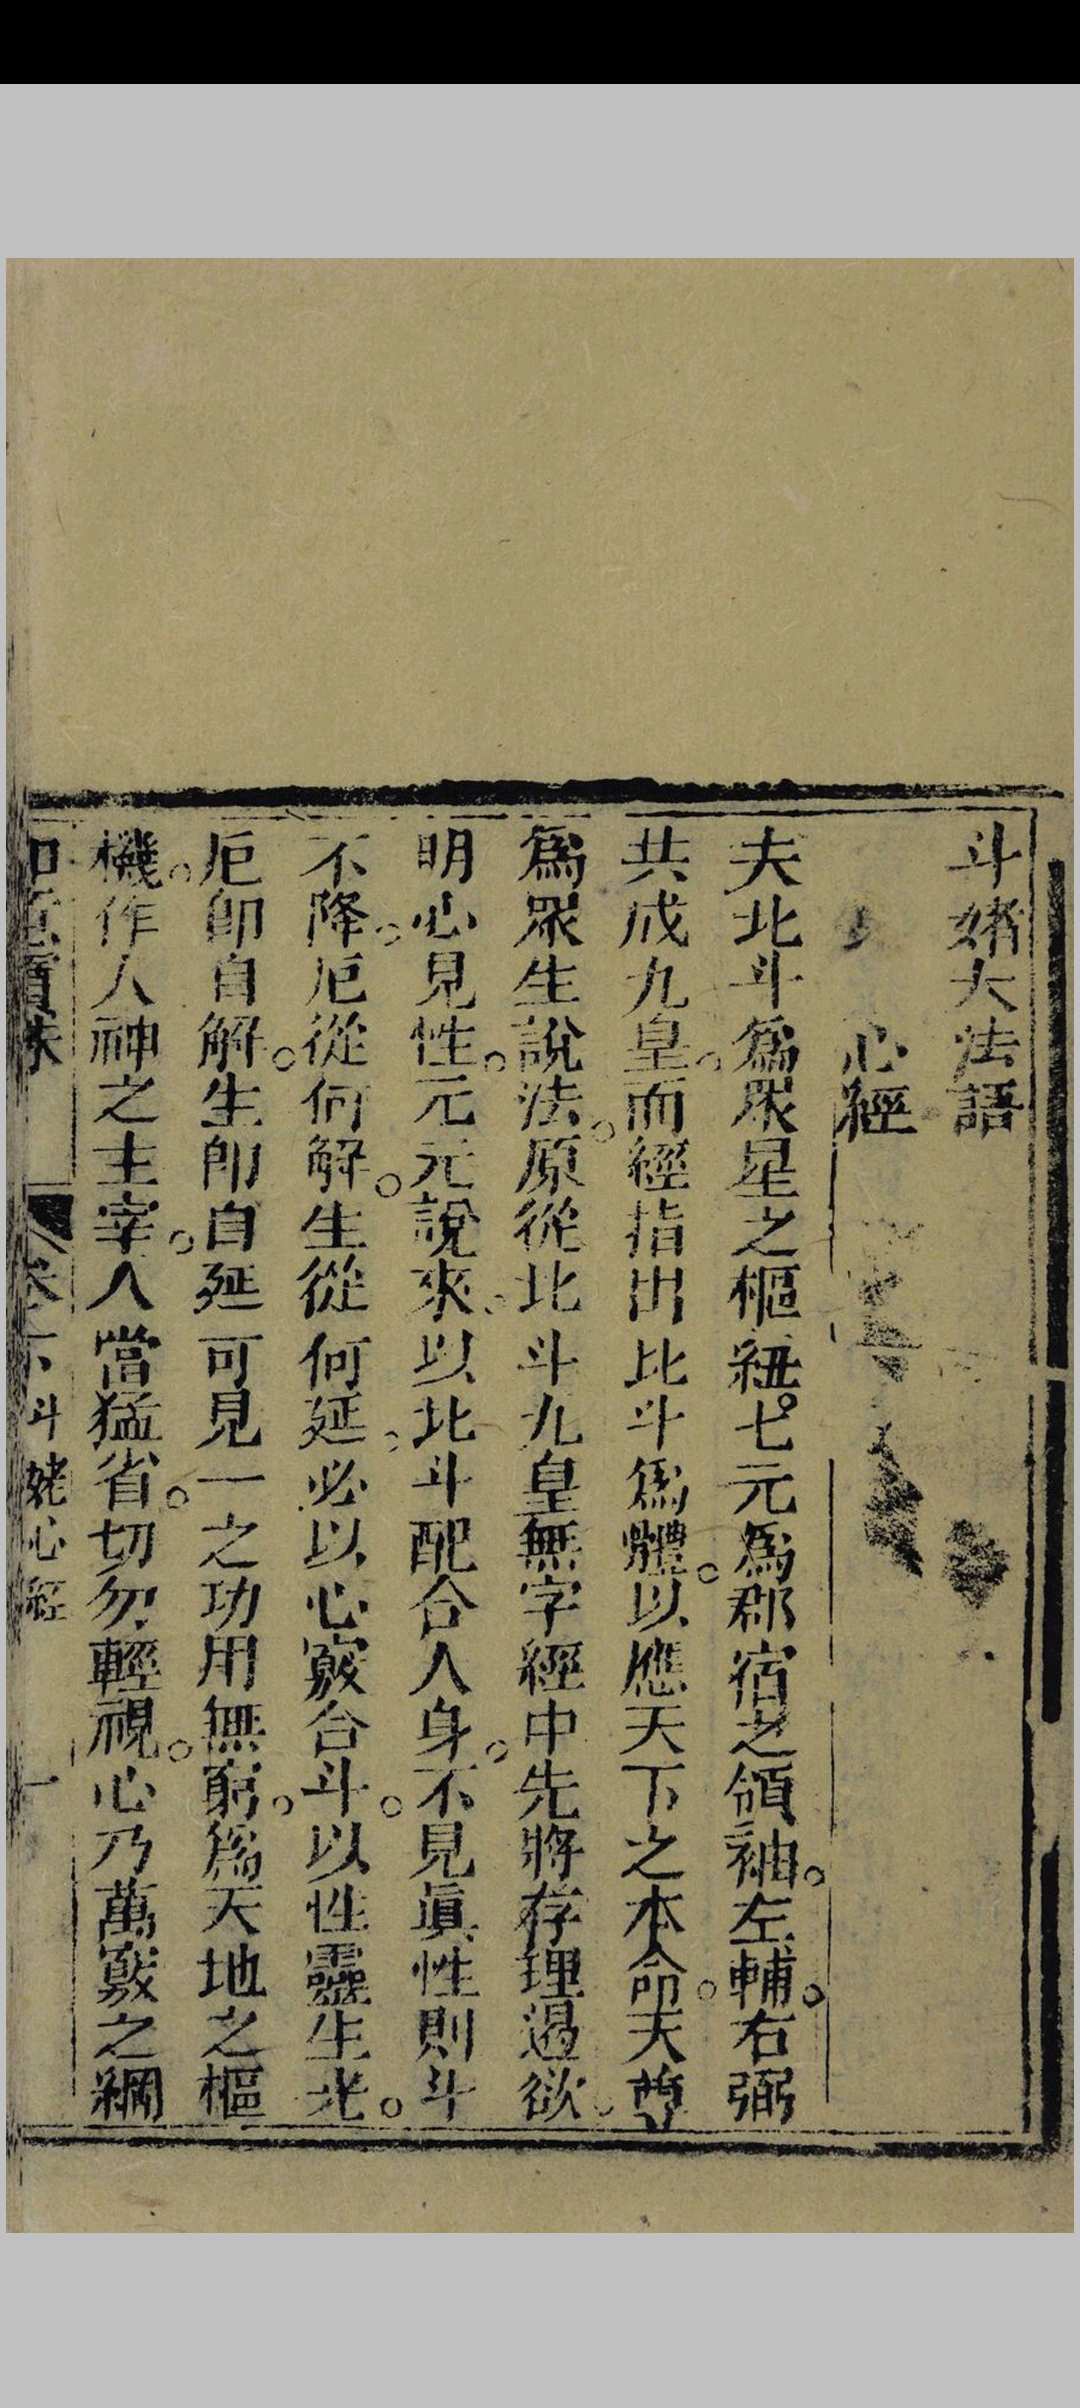 斗姥大法語
心經
夫北斗爲眾星之樞紐。七元爲郡宿之領袖。左輔。右弼
共成九皇。而經指出比斗爲體。以應天下之本命。天尊
爲眾生說法。原從北斗九皇無字經中先將存理遏欲。
明心見性。元元說來。以北斗配合人身。不見眞性則斗
不降。厄從何解。生從何延。必以心竅合斗。以性靈生光。
厄卽自解。生卽自延可見一之功用無窮。爲天地之樞
機。作人神之主宰。人當猛省。切勿輕視。心乃萬竅之綱
卷下斗姥心經 一